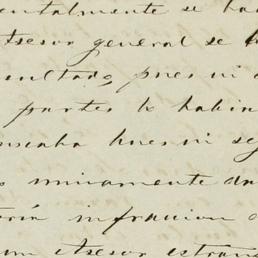 entalmente se ha
Asesor general se
sultado, pues ni
partes lo habia
nsaba pues ni se
unicamente da
oria infraccion
un Asesor estran